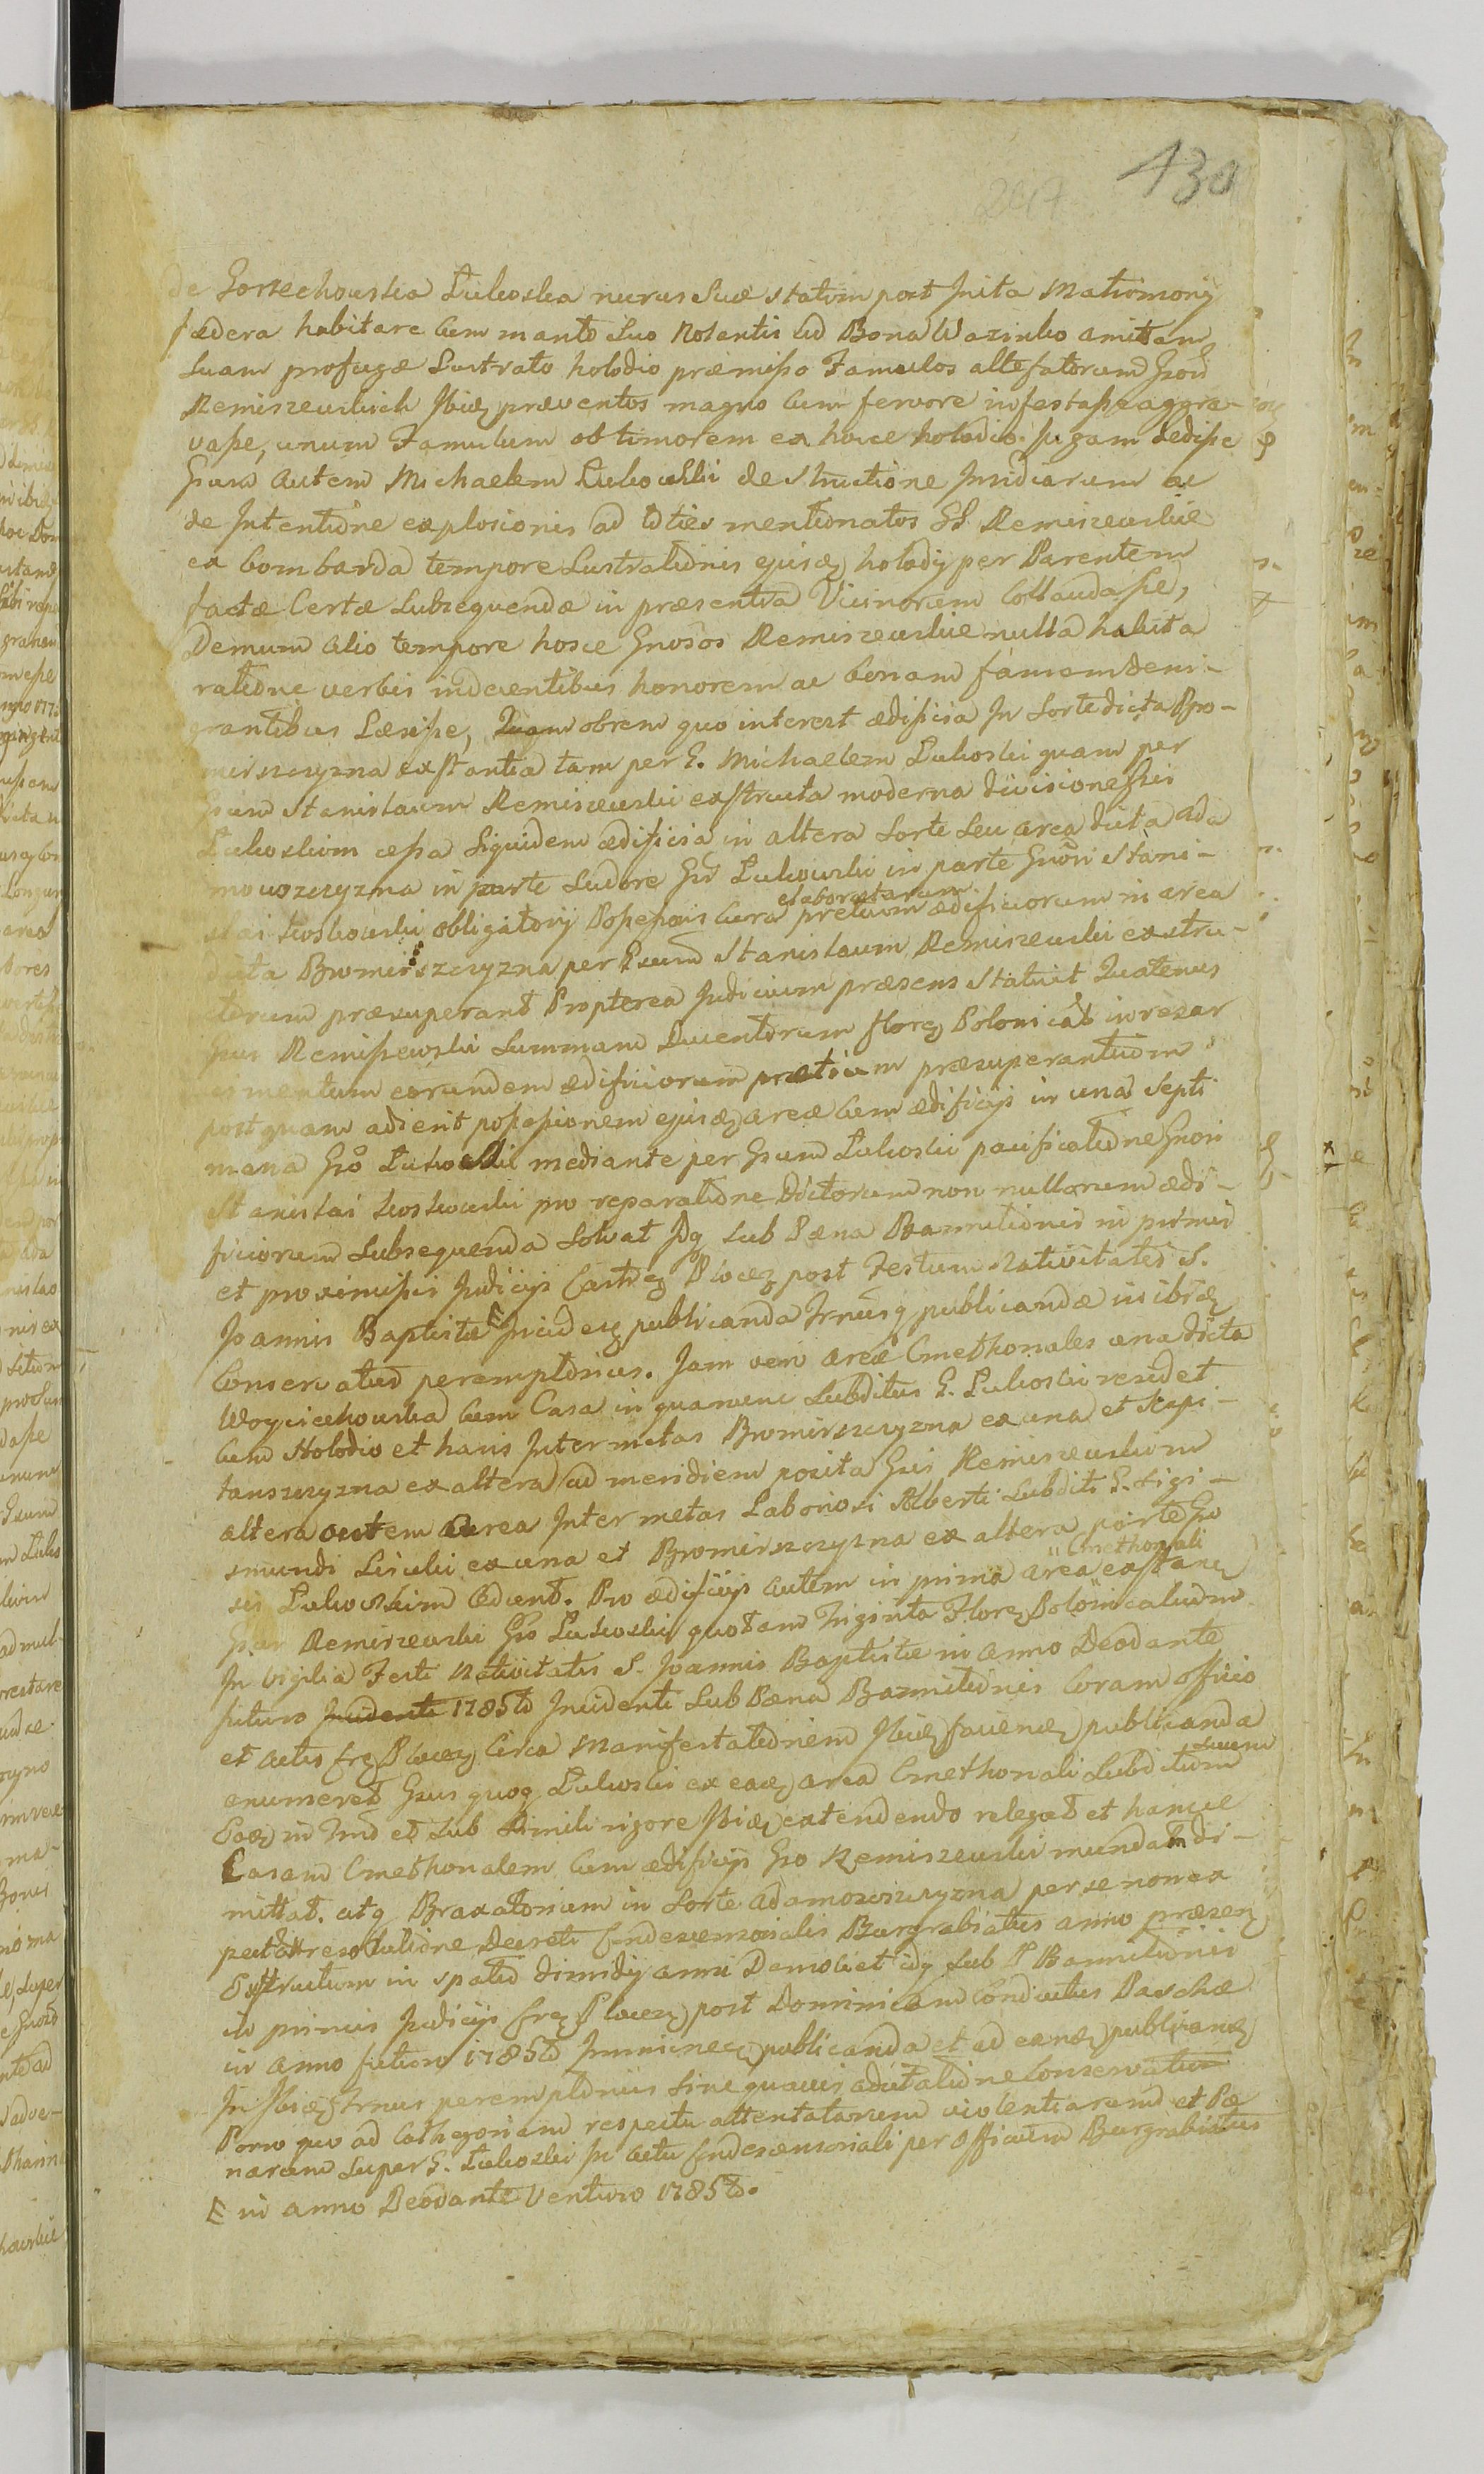 130
2017
de Gorzechowska Lukoska nurus Suae statim post Inita Matrimonij
faedera habitare Cum marito Suo Nolentis ad Bona Wazinko amitam
Suam profugae Lustrato holodio praemisso Famulos altefatorum Gsor
Remiszewskich Ibiq praeventos magno Cum fervore infestasse aggra-
vasse, unum Famulum ob timorem ex hocce holodio fugam dedisse
Gsum Autem Michaelem Lukowski de Structione Insidiarum ac
de Intentione explosionis ad toties mentionatos GG Remiszewskie
ex bombarda tempore Lustrationis ejusq holodij per Parentem
factae Certae Subsequendae in praesentia Vicinorum Collaudasse,
Demum alio tempore hosce Gnosos Remiszewskie nulla habita
ratione verbis indecentibus honorem ac bonam famam deni-
grantibus Laesisse, Quam obrem quo interest aedificia In Sorte dicta Bro-
mirszczyzna exstantia tam per G. Michaelem Lukoski quam per
Gsum Stanislaum Remiszewski exstructa moderna divisione Gsis
Lukoskim cessa Siquidem aedificia in altera Sorte Seu area dicta Ada
mowszczyzna in parte Sudore Gsi Lukowski in parte Gnosi Stani-
slai Koskowski obligatorij Possessoris Cura elaboratarum pretium aedificiorum in area
dicta Bromirszczyzna per Gsum Stanislaum Remiszewski exstru-
ctorum praesuperant Propterea Judicium praesens Statuit Quatenus
Gsus Remissewski Summam Ducentorum florq Polonical in resar
cimentum eorundem aedificiorum praetium praesuperantium
postquam adierit possessionem ejusq areae Cum aedificijs in una Septi
mana Gso Lukoski mediante per Gsum Lukoski pacificatione Gnosi
Stanislai Koskowski pro reparatione Dictorum non nullorum aedi-
ficiorum Subsequenda Solvat Idq Sub Paena Bannitionis in primis
et proximissis Judicijs Castrq Plocq post Festum Nativitatis S.
Joannis Baptistae Incideq publicanda Trnusq publicandae in ibiq
Conservatus peremptorius. Jam vero areae Cmethonales una dicta
Woyciechowska Cum Casa in qua nunc Subditus G. Lukoski residet
Cum Holodio et haris Inter metas Bromirszczyzna ex una et Kapi-
tanszczyzna ex altera ad meridiem posita Gsis Remiszewskim
altera autem area Inter metas Laboriosi Alberti Subditi G. Sigi-
smundi Lisicki ex una et Bromirszczyzna ex altera parte Gso
sis Lukoskim Cedent. Pro aedificijs autem in prima area Cmethonali exstanq
Gsus Remiszewski Gso Lukoski quotam Triginta Florq Polonicalium
In vigilia Festi Nativitatis S. Joannis Baptistae in anno Deodante
futuro Incidente 1785to Incidenti Sub Paena Bannitionis Coram officio
et Actis Crq Plocq Circa Manifestationem Ibiq facienq publicanda
enumeret Gsus quoq Lukoski ex eaq area Cmethonali Subditum Suum
Eoq in Tno et Sub Simili rigore Ibiq extendendo releget et hancce
Casam Cmethonalem Cum aedificijs Gso Remiszewski mundam di-
mittat. atq Braxatorium in Sorte adamowszczyzna per se non ex
pectata resolutione Decreti Condescensorialis Burgrabialis anno praesenq
Exstructum in spatio dimidij anni Demoliet idq Sub P Bannitionis
in primis Judicijs Crq Plocq post Dominicam Conductus Paschae
in anno futuro 1785to Imminenq publicanda et ad eanq publicanq
In Ibiq Trnus peremptorius Sine quavis adcitatione Conservatur
Porro quo ad Cathegoriam respectu attentatarum violentiarum et Pae
narum Super G. Lukoski In Actu Condescensoriali per Officium Burgrabiale
E in anno Deodante Venturo 1785to.